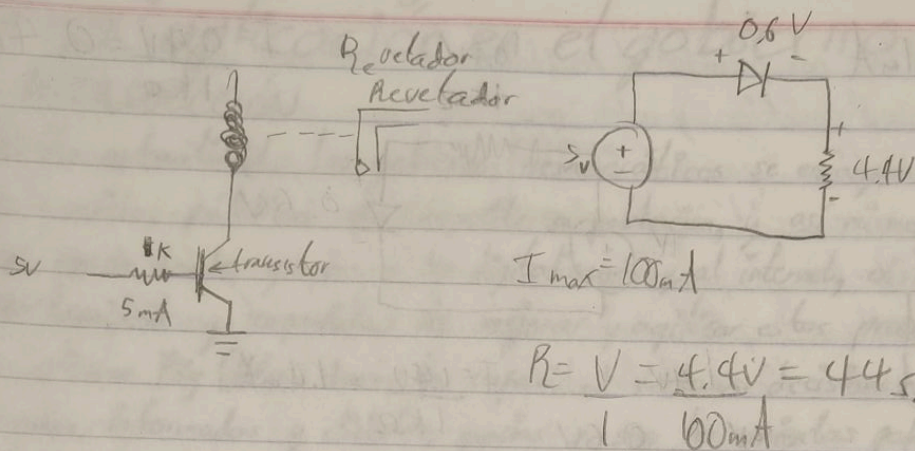 Revelador
Revelador
0,6 V
+ -
5v
+
-
+
4.4V
-
1K
5v
transistor
5mA
Imax=100mA
R= V = 4.4V = 44
1 100mA